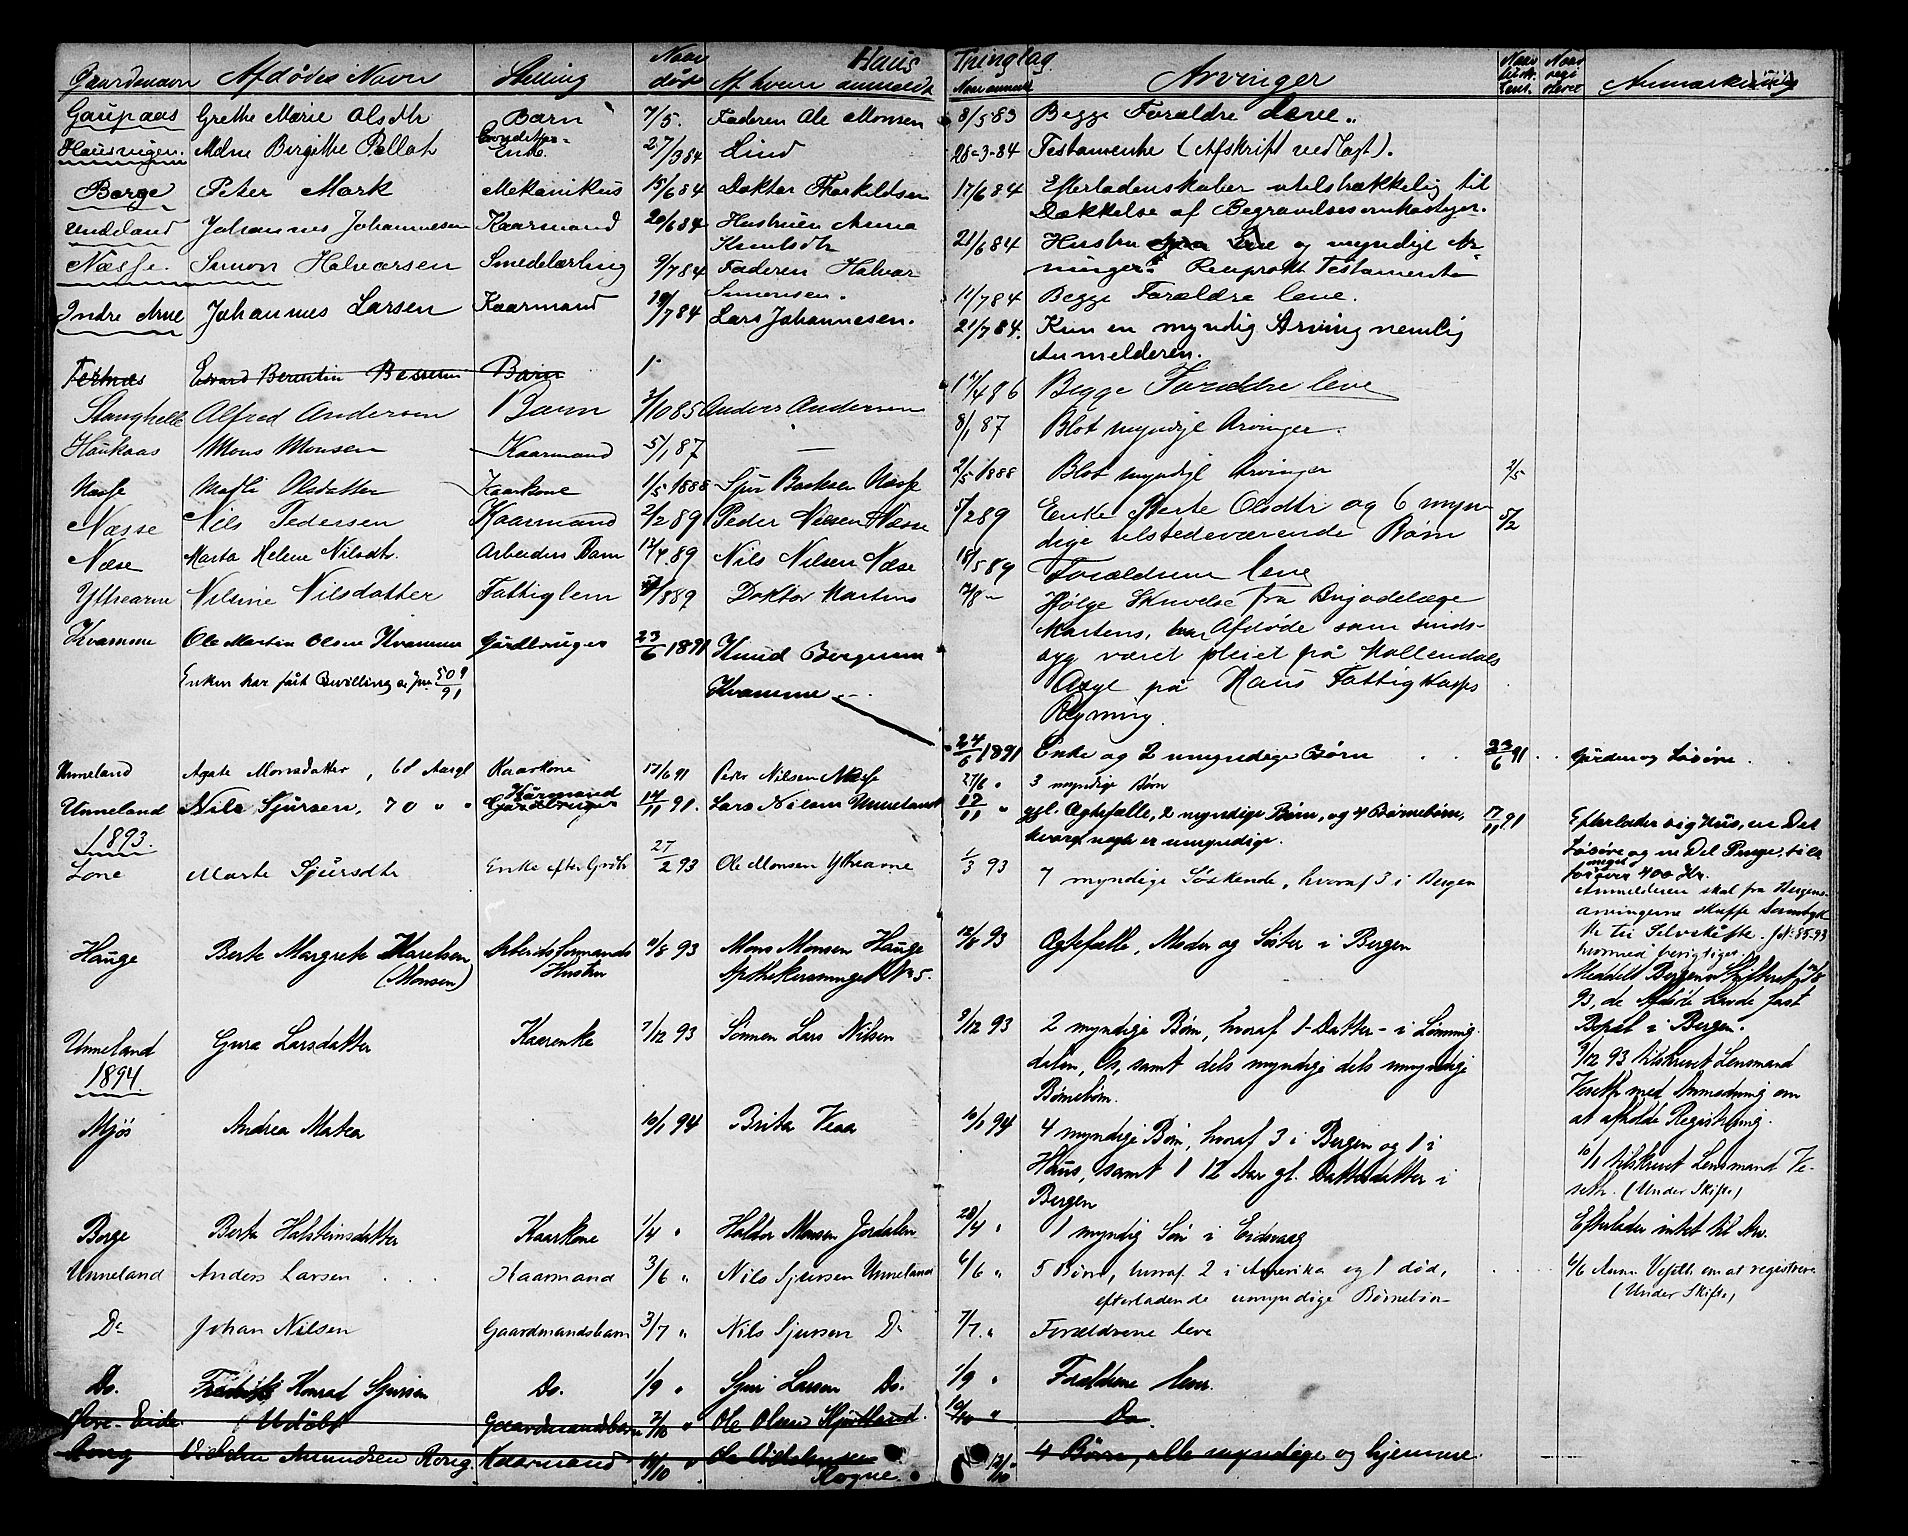 Haus Tinglag
Gaardsnavn Afdødes Navn Stilling Naar død Af hvem anmeldt Naar anmeldt Arvinger Naar Naar Anmærkning
Gaupaas Grethe Marie Olsdtr Barn 7/5. Faderen Ole Monsen 8/5 83 Begge Forældre Leve.
Hausvigen. Mdme Birgithe Pallot Enke. 27/3 84 Lind 28-3-84 Testamente (Afskrift vedlagt).
Borge Peter Mork Mekanikus 15/6 84 Doktor Thorkildsen 17/6 84 Efterladenskaber utilstrækkelig til
Dækkelse af Begravelsesomkostger.
Unneland Johannes Johannesen Kaarmand 20/6 84 Hustruen Anna
21/6 84 Hustru Leve og myndige Ar-
vinger. Reciprokt Testamente
Næsse. Simon Halvorsen Smedelærling 9/7 84 Faderen Halvor
Simonsen. 11/7 84 Begge Forældre leve.
Indre Arne Johannes Larsen Kaarmand 19/7 84 Lars Johannesen. 21/7 84. Kun en myndig Arving nemlig
Anmelderen.
Edvard Berentin Barn
11/4 86 Begge Forældre leve
Stanghelle Alfred Andersen Barn 3/10 85 Anders Andersen
8/1 87 Blot myndige Arvinger.
Haukaas Mons Monsen Kaarmand 5/1 87 —
Næsse Olsdatter Kaarkone 1/5 1888 Næsse 2/5 1888 Blot myndige Arvinger 2/5
Næsse Nils Pedersen Kaarmand 2/2 89 Peder Nilsen Næsse 5/2 89 Enke Berte Olsdtr og 6 myn
dige tilstedeværende Børn 5/2
Næse Marta Helene Nilsdtr. Arbeiders Barn 17/4 89 Nils Nilsen Næse 18/5 89 Forældrene leve
Ytrearne Nilsine Nilsdatter Fattiglem /8 89 Doktor Martens 12/8 — Ifølge Skrivelse fra Brigadelæge
Martens, har Afdøde som sinds-
syg været pleiet på Møllendals
Asyl på Haus Fattigkasses
Regning.
Kvamme Ole Martin Olsen Kvamme Gårdbruger 23/6 1891 Knud Bergesen
Kvamme
Enken har fåt Bevilling 509/91
24/6 1891 Enke og 2 umyndige Børn 23/6 91 Gården og Løsøre.
Unneland Agate Monsdatter, 68 Aargl Kaarkone 17/6 91 Peder Nilsen Næsse 27/6 " 3 myndige Børn
Unneland Nils Sjursen, 70 " " Kårmand 14/11 91. Lars Nilsen Unneland 17/11 " gjl. Ægtefælle, 2 myndige Børn, og 4 Børnebørn,
hvoraf nogle er umyndige. 17/11 91 Efterlader sig Hus, en Del
Løsøre og en Del Penge,
400 Kr.
1893.
Lone Marte Sjursdtr Enke efter Grdbr 27/2 93 Ole Monsen Ytrearne 1/3 93 7 myndige Søskende, hvoraf 3 i Bergen
Anmelderen skal fra Bergens-
arvingerne skaffe Samtyk
ke til Selvskifte. JN: 85.93
hvormed berigtiges
Hauge Berte Margrete Karelsen
(Monsen) Arbeidsformands
Hustru 11/8 93 Mons Monsen Hauge
12/8 93 Ægtefælle, Moder og Søster i Bergen
Meddelt Bergens Skifteret
93, de Afdøde havde fast
Bopæl i Bergen.
Unneland Gura Larsdatter Kaarenke 7/12 93 Sønnen Lars Nilsen 9/12 93 2 myndige Børn, hvoraf 1 Datter i
dalen, Os, samt dels myndige dels umyndige
Børnebørn.
9/12 93 tilskrevet Lensmand
Veseth med Anmodning om
at afholde Registrering.
1894.
Mjøs Andrea Matea 10/1 94 Brita Veaa 10/1 94 4 myndige Børn, hvoraf 3 i Bergen og 1 i
Haus, samt 1 12 Aar gl. Datterdatter i
Bergen
10/1 tilskrevet Lensmand Ve-
seth. (Under Skifte)
Borge Berte Halsteinsdatter Kaarkone 1/4 " Haldor Monsen Jordalen 28/4 " 1 myndig Søn i Eidsvaag Efterlader intet til Arv.
Unneland Anders Larsen Kaarmand 3/6 " Nils Sjursen Unneland 6/6 " 5 Børn, hvoraf 2 i Amerika og 1 død,
efterladende umyndige Børnebørn
6/6 Anm. Veseth om at registrere
(Under Skifte)
Do Johan Nilsen Gaardmandsbarn 3/7 " Nils Sjursen Do 7/7 " Forældrene leve
Do. Fredrik Konrad Sjursen Do. 1/9 " Sjur Larsen Do. 1/9 " Forældrene lever.
Øvre-Eide Udøbt Gaardmandsbarn 7/10 " Ole Olsen 10/10 " Do.
Rong Vilhelm Amundsen Rong. Kaarmand 11/10 " Ole Vilhelmsen
Rogne 12/10 4 Børn, alle myndige og hjemme